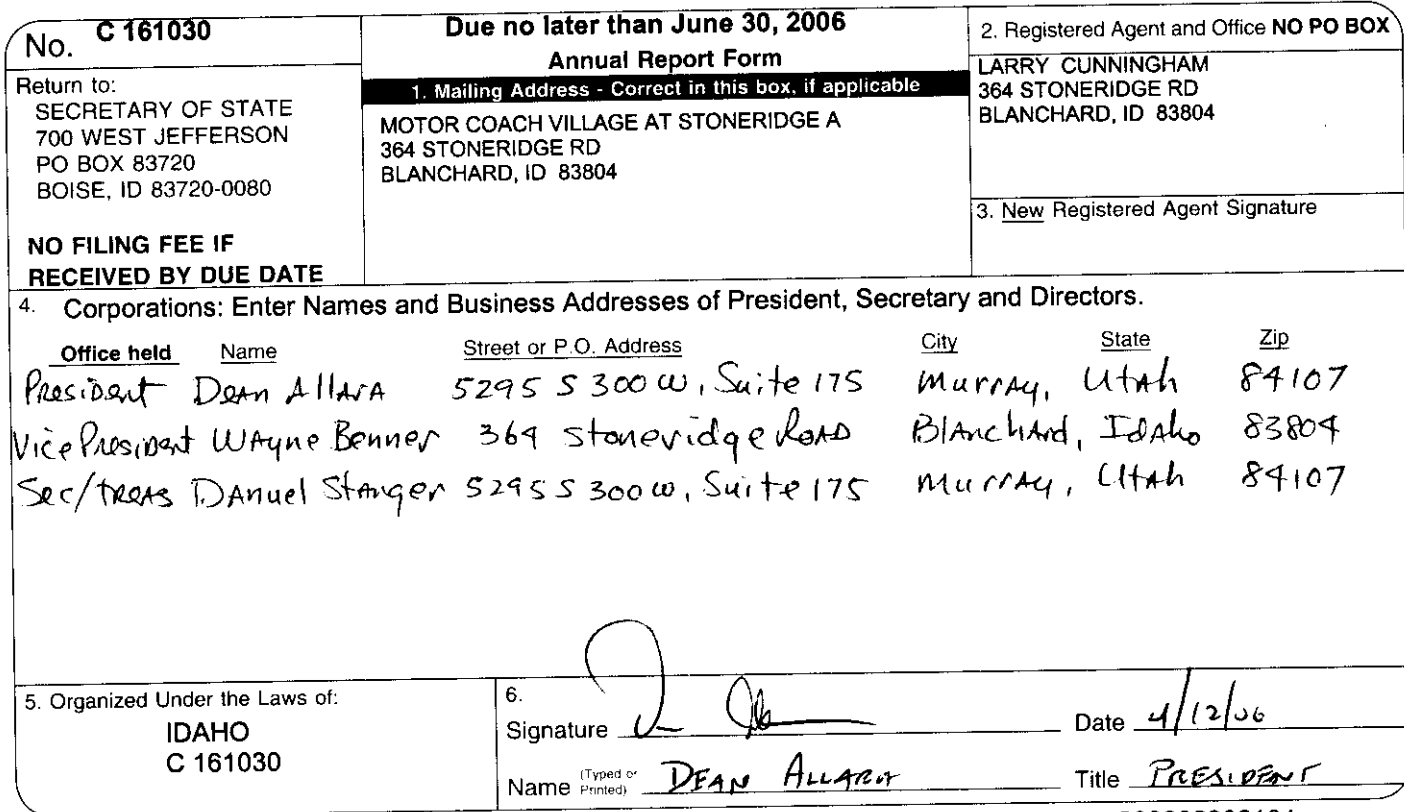 No. C 161030
Return to:
SECRETARY OF STATE
700 WEST JEFFERSON
PO BOX 83720
BOISE, ID 83720-0080
NO FILING FEE IF
RECEIVED BY DUE DATE
Due no later than June 30, 2006
Annual Report Form
1. Mailing Address - Correct in this box, if applicable
MOTOR COACH VILLAGE AT STONERIDGE A
364 STONERIDGE RD
BLANCHARD, ID 83804
2. Registered Agent and Office NO PO BOX
LARRY CUNNINGHAM
364 STONERIDGE RD
BLANCHARD, ID 83804
3. New Registered Agent Signature
4. Corporations: Enter Names and Business Addresses of President, Secretary and Directors.
Office held Name Street or P.O. Address City State Zip
President Dean Allara 5295 S 300 W, Suite 175 Murray, Utah 84107
Vice President Wayne Benner 364 Stoneridge Road Blanchard, Idaho 83804
Sec/Treas Danuel Stanger 5295 S 300 W, Suite 175 Murray, Utah 84107
5. Organized Under the Laws of:
IDAHO
C 161030
6.
Signature Date 4/12/06
Name (Typed or Printed) DEAN ALLARA Title PRESIDENT